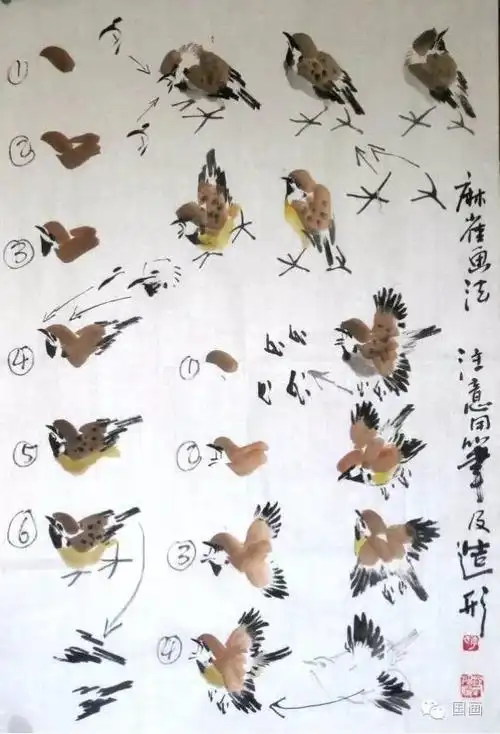 ①
②
③
④
⑤
⑥
①
②
③
④
麻雀画法 注意用筆及造形
国画